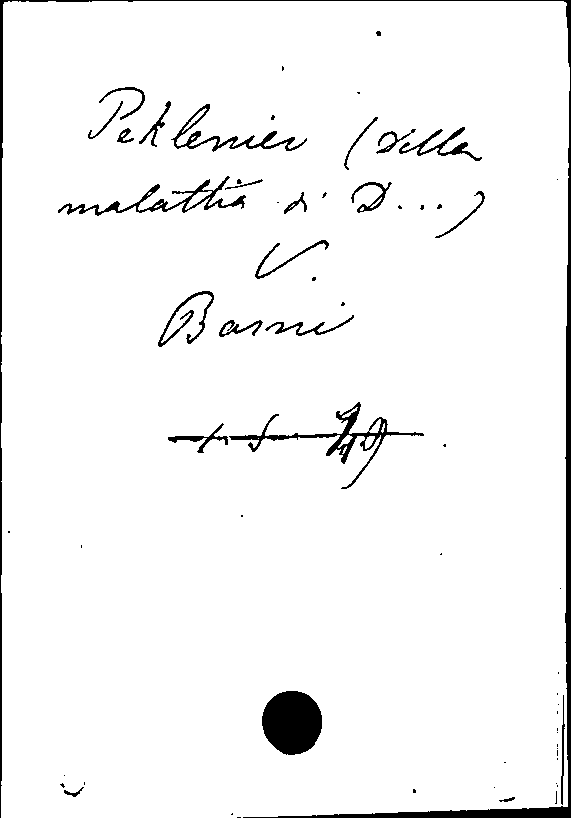 Peklenier (della
malattia di D...)
V.
Barni